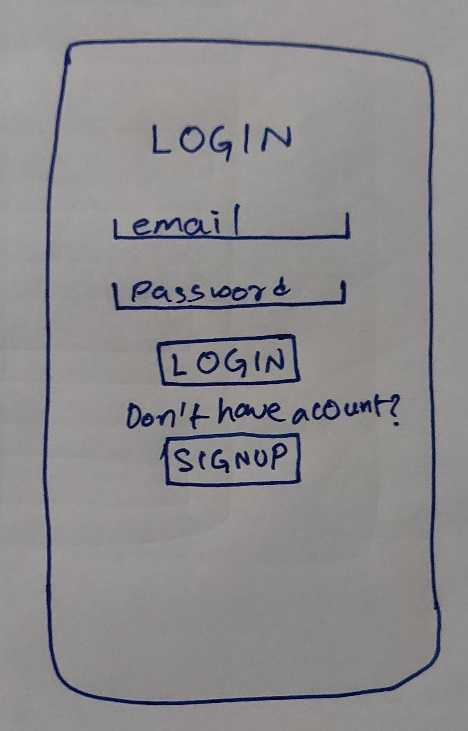 LOGIN
email
Password
LOGIN
Don't have acount?
SIGNUP